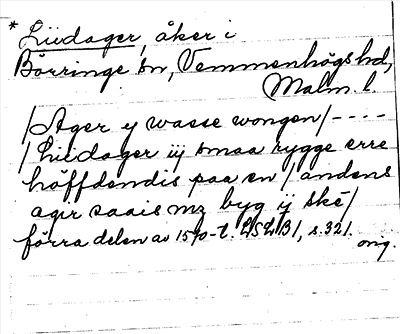 * Liedager, åker i
Börringe sn, Vemmenhögs hd,
Malm. l.
/Ager y wasse wongen/ ----
/Liedager iij smaa rygge erre
höffdendis paa en /andens
ager saais mz byg ij skē/
förra delen av 1570-t. LSLB1, s. 321.
orig.